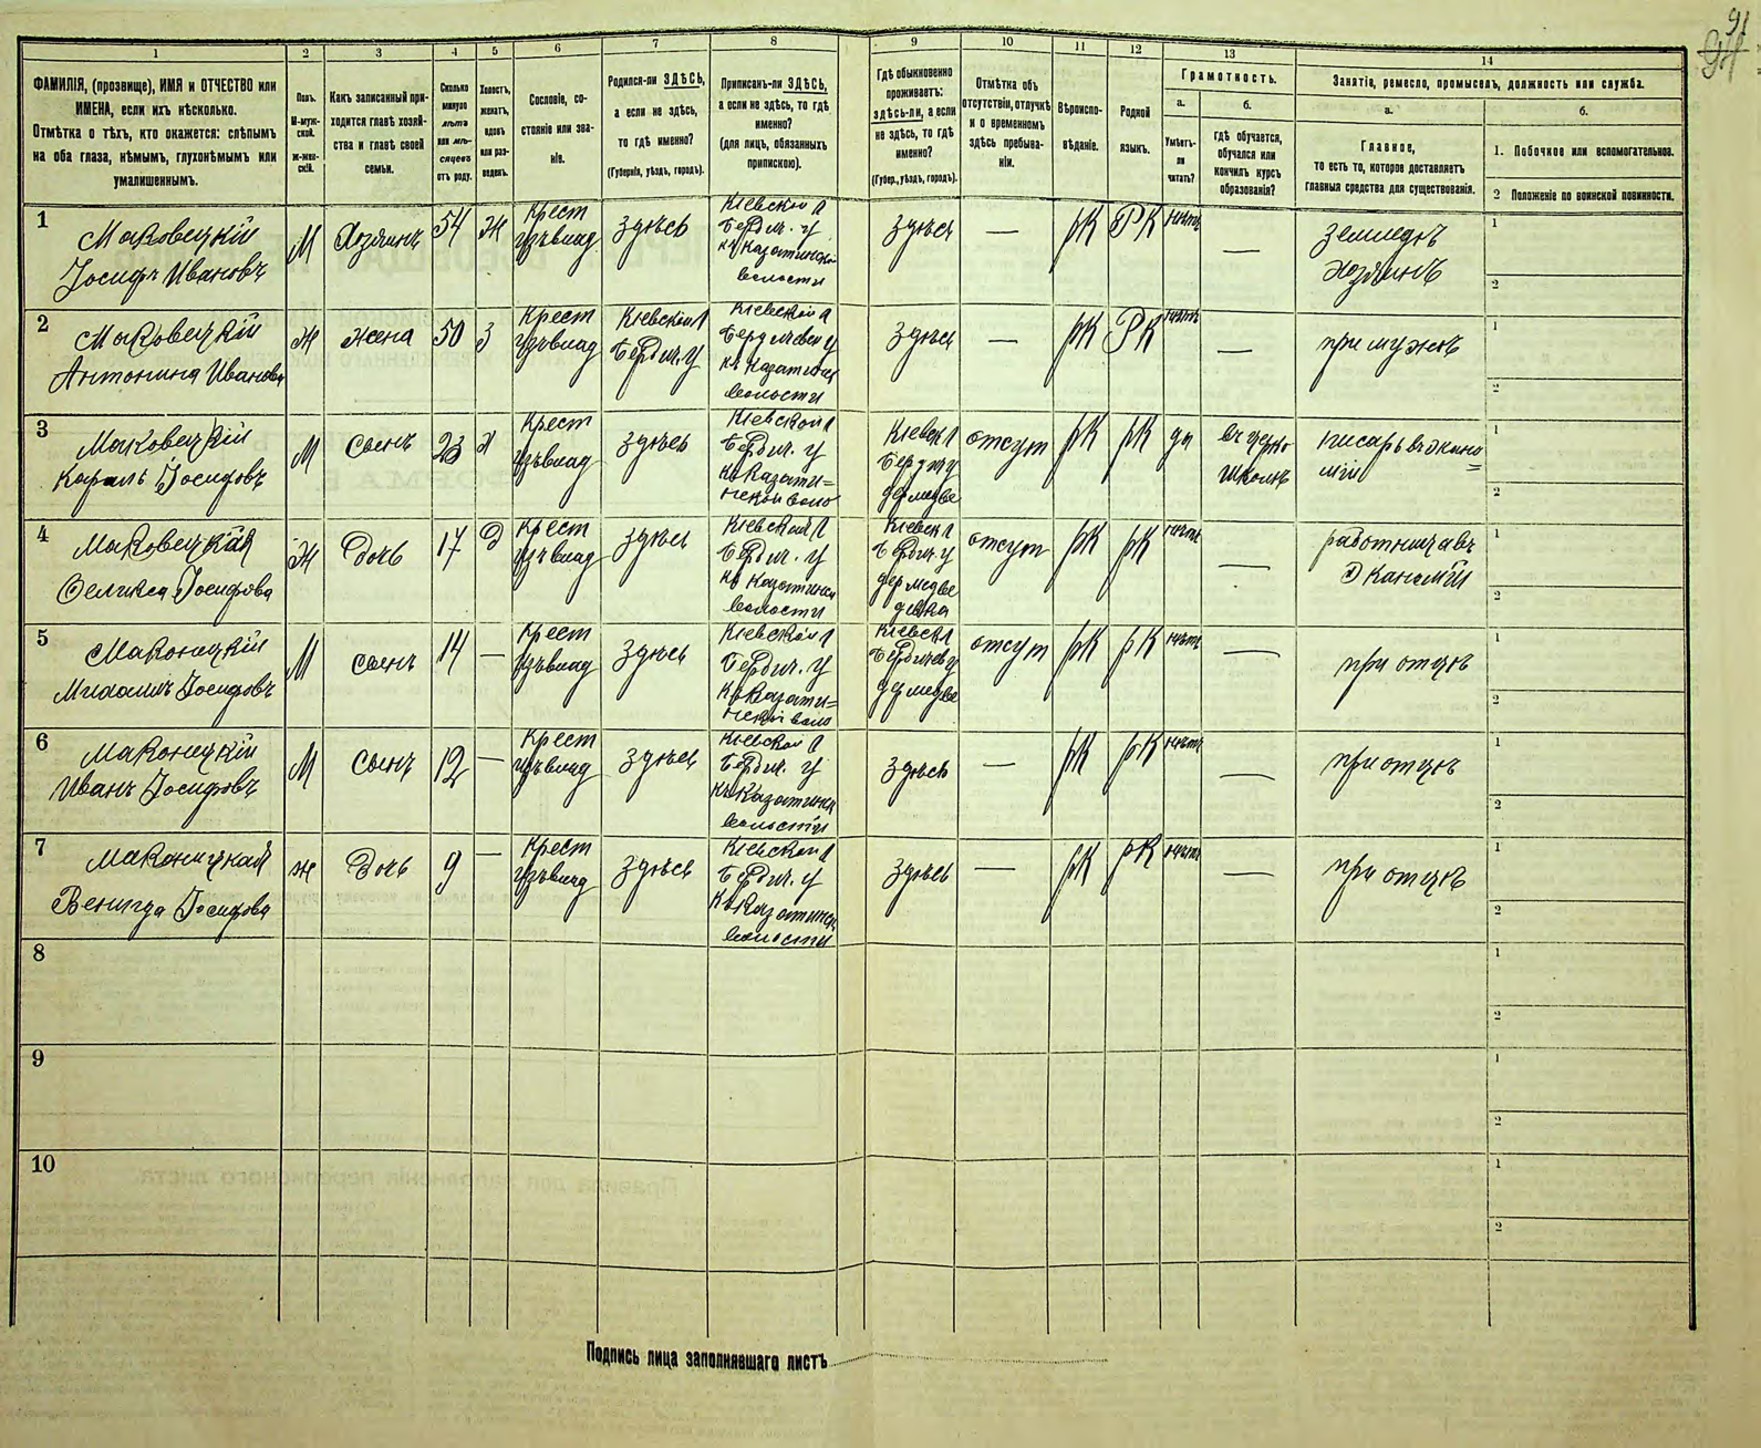 91
1
2
3
4
5
6
7
8
9
10
11
12
13
14
ФАМИЛІЯ, (прозвище), ИМЯ и ОТЧЕСТВО или
ИМЕНА, если ихъ нѣсколько.
Отмѣтка о тѣхъ, кто окажется: слѣпымъ
на оба глаза, нѣмымъ, глухонѣмымъ или
умалишеннымъ.
Полъ.
М-муж-
ской.
Ж-жен-
скій.
Какъ записанный при-
ходится главѣ хозяй-
ства и главѣ своей
семьи.
Сколько
минуло
лѣтъ
или мѣ-
сяцевъ
отъ роду.
Холостъ,
женатъ,
вдовъ
или раз-
веденъ.
Сословіе, со-
стояніе или зва-
ніе.
Родился-ли ЗДѢСЬ,
а если не здѣсь,
то гдѣ именно?
(Губернія, уѣздъ, городъ).
Приписанъ-ли ЗДѢСЬ,
а если не здѣсь, то гдѣ
именно?
(для лицъ, обязанныхъ
припискою).
Гдѣ обыкновенно
проживаетъ:
здѣсь-ли, а если
не здѣсь, то гдѣ
именно?
(Губер., уѣздъ, городъ).
Отмѣтка объ
отсутствіи, отлучкѣ
и о временномъ
здѣсь пребыва-
ніи.
Вѣроиспо-
вѣданіе.
Родной
языкъ.
Грамотность.
а.
Умѣетъ-
ли
читать?
б.
гдѣ обучается,
обучался или
кончилъ курсъ
образованія?
Занятія, ремесло, промыселъ, должность или служба.
а.
Главное,
то есть то, которое доставляетъ
главныя средства для существованія.
б.
1. Побочное или вспомогательное.
2 Положеніе по воинской повинности.
1
Маковецкій
Іосифъ Ивановъ
М
Хозяинъ
54
Ж
Крест
изъ влад
здѣсь
Кіевской г
Бердич. у
къ Казатинской
волости
здѣсь
—
рК
РК
нѣтъ
—
землед
хозяинъ
1
2
2
Маковецкій
Антонина Иванова
Ж
жена
50
З
Крест
изъ влад
Кіевской г
Бердич. у
Кіевской г
Бердичевск у
къ Казатинск
волости
здѣсь
—
рК
РК
нѣтъ
—
при мужѣ
1
2
3
Маковецкій
Кароль Іосифовъ
М
сынъ
23
Х
Крест
изъ влад
здѣсь
Кіевской г
Бердич. у
къ Казати=
нской воло
Кіевск г
Бердич у
дер медве
отсут
рК
рК
да
въ церко
школѣ
писарь въ экано
=
міи
1
2
4
Маковецкая
Фелиkса Іосифова
Ж
Дочь
17
Д
Крест
изъ влад
здѣсь
Кіевской г
Бердич. у
къ Казатинск
волости
Кіевск г
Бердич. у
дер медве
девка
отсут
рК
рК
нѣтъ
—
работница въ
Эканоміи
1
2
5
Маконецкій
Михаилъ Іосифовъ
М
сынъ
14
—
Крест
изъ влад
здѣсь
Кіевской г
Бердич. у
къ Казати=
нской воло
Кіевск г
Бердичев у
дер медве
отсут
рК
рК
нѣтъ
—
при отцѣ
1
2
6
Маконецкій
Иванъ Іосифовъ
М
сынъ
12
—
Крест
изъ влад
здѣсь
Кіевской г
Бердич. у
къ Казатинск
волости
здѣсь
—
рК
рК
нѣтъ
—
при отцѣ
1
2
7
Маконицкая
Іосифова
ж
Дочь
9
—
Крест
изъ влад
здѣсь
Кіевской г
Бердич. у
къ Казатинск
волости
здѣсь
—
рК
рК
нѣтъ
—
при отцѣ
1
2
8
1
2
9
1
2
10
1
2
Подпись лица заполнявшаго листъ